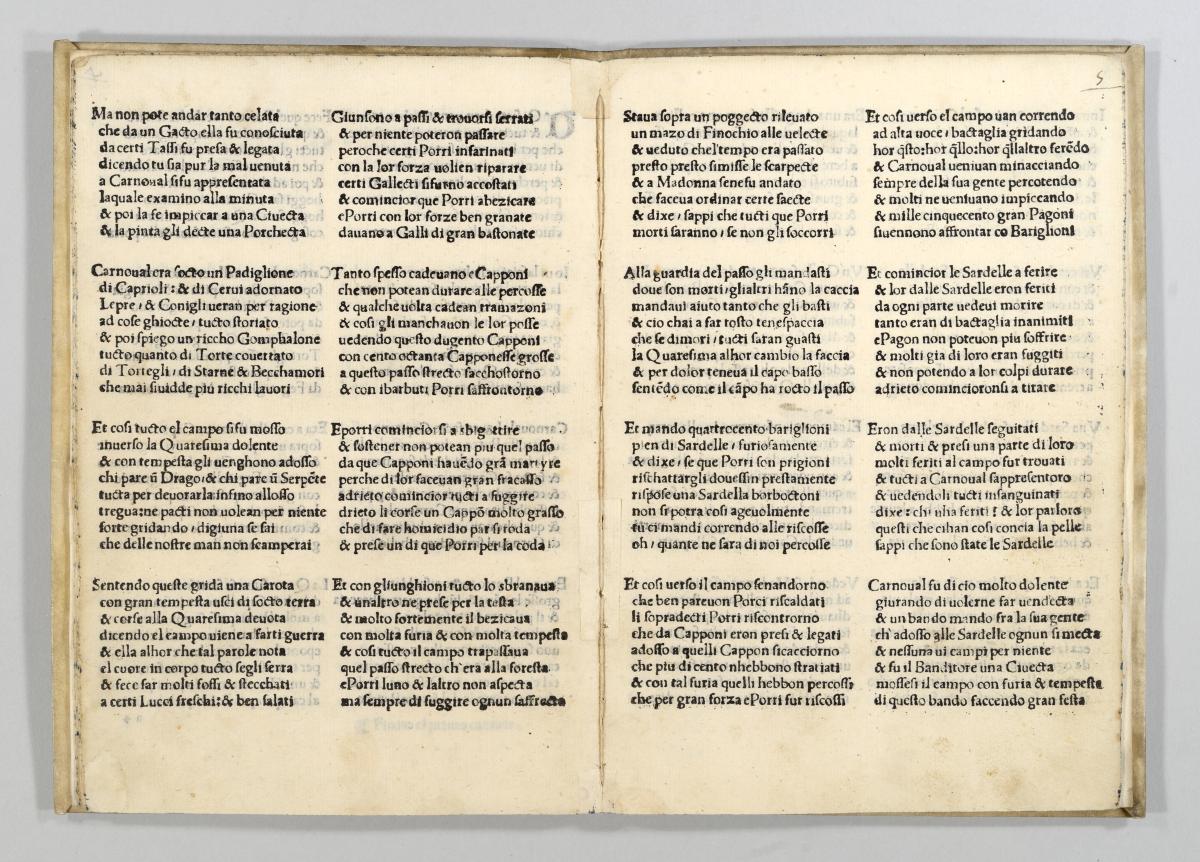 Ma non pote andar tanto celata
che da un Gacto ella fu conosciuta
da certi Tassi fu presa & legata
dicendo tu sia pur la mal uenuta
a Carnoual sifu appresentata
laquale examino alla minuta
& poi la fe impiccar a una Ciuecta
& la pinta gli decte una Porchecta
Carnoual era socto un Padiglione
di Caprioli: & di Cerui adornato
Lepre, & Conigli ueran per ragione
ad cose ghiocte, tucto storiato
& poi spiego un riccho Gomphalone
tucto quanto di Torte couertato
di Tortegli, di Starne & Becchamori
che mai siuidde più ricchi lauori
Et cosi tucto el campo si fu mosso
inuerso la Quaresima dolente
& con tempesta gli uenghono adosso
chi pare ũ Drago, & chi pare ũ Serpẽte
tucta per deuorarla infino allosso
tregua: ne pacti non uolean per niente
forte gridando, digiuna se sai
che delle nostre man non scamperai
Sentendo queste grida una Carota
con gran tempesta usci di socto terra
& corse alla Quaresima deuota
dicendo el campo uiene a farti guerra
& ella alhor che tal parole nota
el cuore in corpo tucto segli serra
& fece far molti fossi & stecchati
a certi Lucci freschi: & ben salati
Giunsono a passi & trouorsi serrati
& per niente poteron passare
peroche certi Porri infarinati
con la lor forza uolien riparare
certi Gallecti sifurno accostati
& comincior que Porri abezicare
ePorri con lor forze ben granate
dauano a Galli di gran bastonate
Tanto spesso cadeuano eCapponi
che non potean durare alle percosse
& qualche uolta cadean tramazoni
& cosi gli manchauon le lor posse
uedendo questo dugento Capponi
con cento octanta Capponesse grosse
a questo passo strecto facchostorno
& con ibarbuti Porri saffrontorno
Eporri cominciorsi a sbigottire
& sostener non potean piu quel passo
da que Capponi hauẽdo grã martyre
perche di lor faceuan gran fracasso
adrieto comincior tucti a fuggire
drieto li corse un Cappõ molto grasso
che di fare homicidio par si roda
& prese un di que Porri per la coda
Et con gliunghioni tucto lo sbranaua
& unaltro ne prese per la testa
& molto fortemente il bezicaua
con molta furia & con molta tempesta
& cosi tucto il campo trapassaua
quel passo strecto ch'era alla foresta
ePorri luno & laltro non aspecta
ma sempre di fuggire ognun saffrecta
5
Staua sopra un poggecto rileuato
un mazo di Finochio alle uelecte
& ueduto chel'tempo era passato
presto presto simisse le scarpecte
& a Madonna senefu andato
che faceua ordinar certe saecte
& dixe, sappi che tucti que Porri
morti saranno, se non gli soccorri
Alla guardia del passo gli mandasti
doue son morti, glialtri hãno la caccia
mandaui aiuto tanto che gli basti
& cio chai a far tosto tenespaccia
che se dimori, tucti saran guasti
la Quaresima alhor cambio la faccia
& per dolor teneua il capo basso
sentẽdo come il cãpo ha rocto il passo
Et mando quattrocento bariglioni
pien di Sardelle, furiosamente
& dixe, se que Porri son prigioni
rischattargli douessin prestamente
rispose una Sardella borboctoni
non si potra cosi ageuolmente
tu ci mandi correndo alle riscosse
oh, quante ne sara di noi percosse
Et cosi uerso il campo senandorno
che ben pareuon Porci riscaldati
li sopradecti Porri riscontrorno
che da Capponi eron presi & legati
adosso a quelli Cappon sicacciorno
che piu di cento nhebbono stratiati
& con tal furia quelli hebbon percossi
che per gran forza ePorri fur riscossi
Et cosi uerso el campo uan correndo
ad alta uoce, bactaglia gridando
hor q̃sto: hor q̃llo: hor q̃llaltro ferẽdo
& Carnoual ueniuan minacciando
sempre della sua gente percotendo
& molti ne ueniuano impiccando
& mille cinquecento gran Pagoni
siuennono affrontar co Bariglioni
Et comincior le Sardelle a ferire
& lor dalle Sardelle eron feriti
da ogni parte uedeui morire
tanto eran di bactaglia inanimiti
ePagon non poteuon piu soffrire
& molti gia di loro eran fuggiti
& non potendo a lor colpi durare
adrieto comincioronsi a titare
Eron dalle Sardelle seguitati
& morti & presi una parte di loro
molti feriti al campo fur trouati
& tucti a Carnoual sappresentoro
& uedendoli tucti insanguinati
dixe: chi uha feriti? & lor parloro
questi che cihan cosi concia la pelle
sappi che sono state le Sardelle
Carnoual fu di cio molto dolente
giurando di uolerne far uendecta
& un bando mando fra la sua gente
ch' adosso alle Sardelle ognun si mecta
& nessuna ui campi per niente
& fu il Banditore una Ciuecta
mossesi il campo con furia & tempesta
di questo bando faccendo gran festa